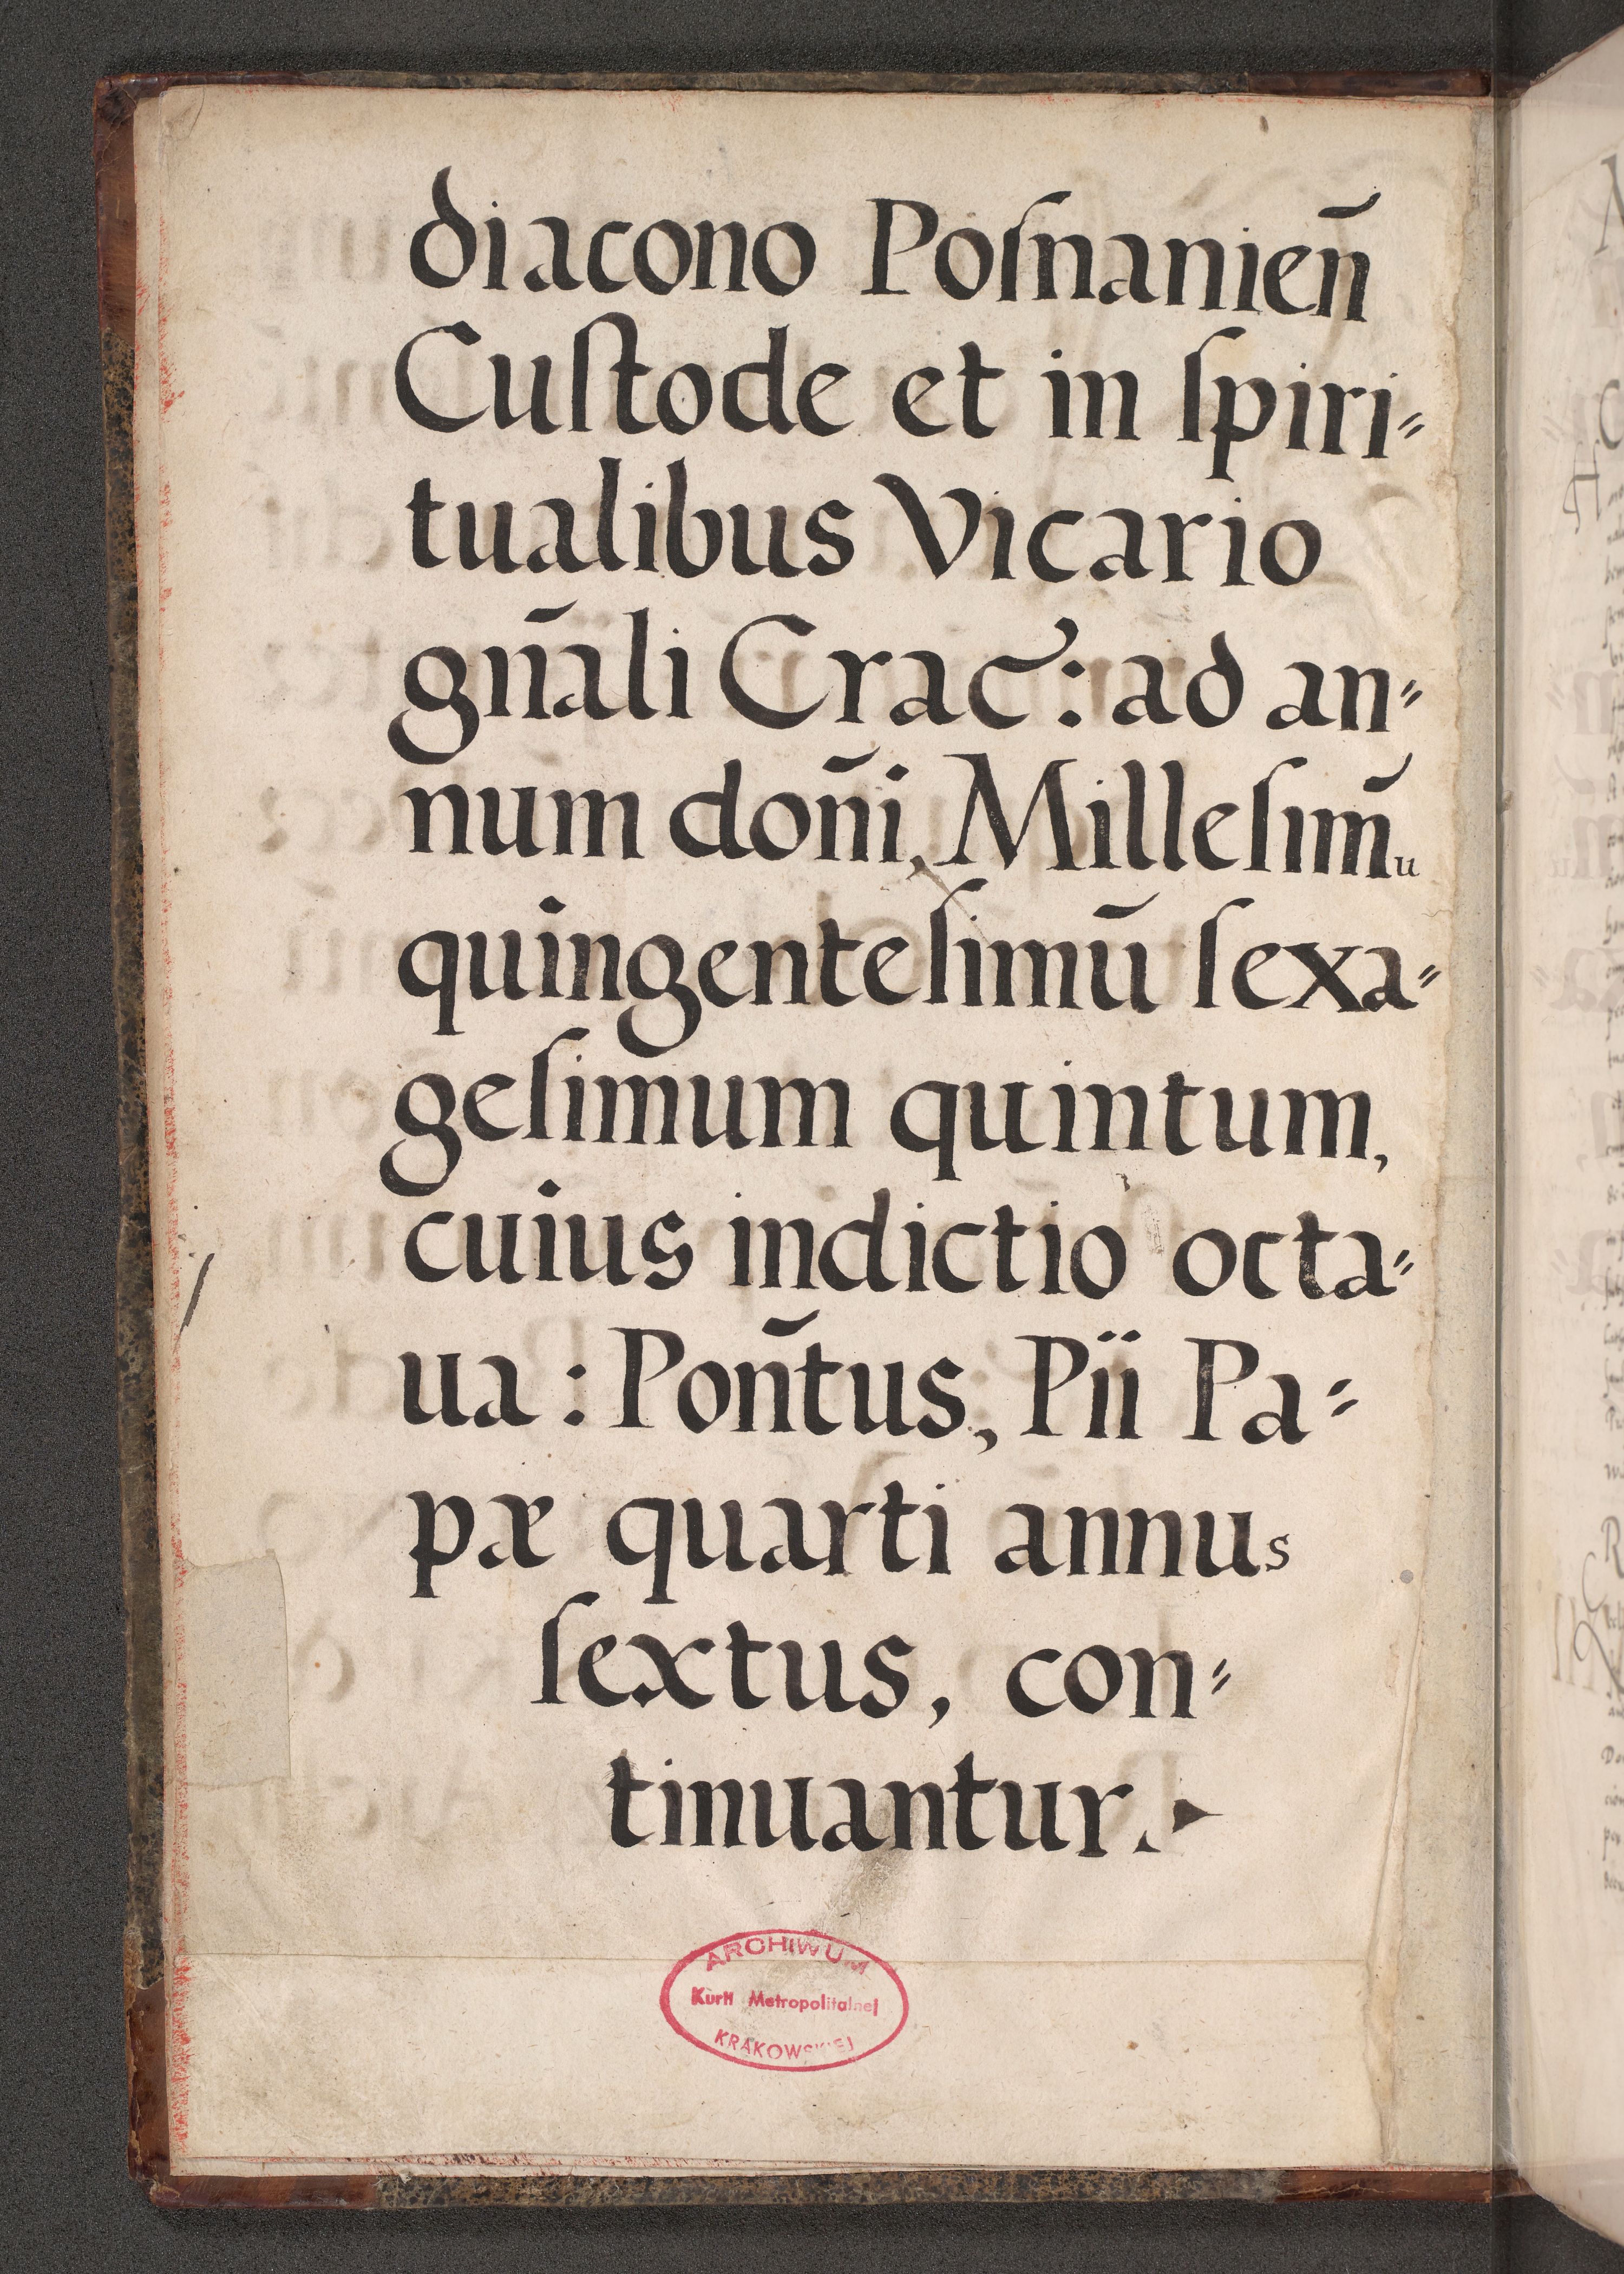 diacono Poſnanien̄
Cuſtode et in ſpiri⸗
tualibus Vicario
gn̄ali Crac̄: ad an⸗
num don̄i, Milleſim̄u
quingenteſimū ſexa⸗
geſimum quintum,
cuius indictio octa⸗
ua: Pon̄tus, Pii Pa⸗
pæ quarti annus
ſextus, con⸗
tinuantur.
ARCHIWUM
Kurii Metropolitalnej
KRAKOWSKIEJ